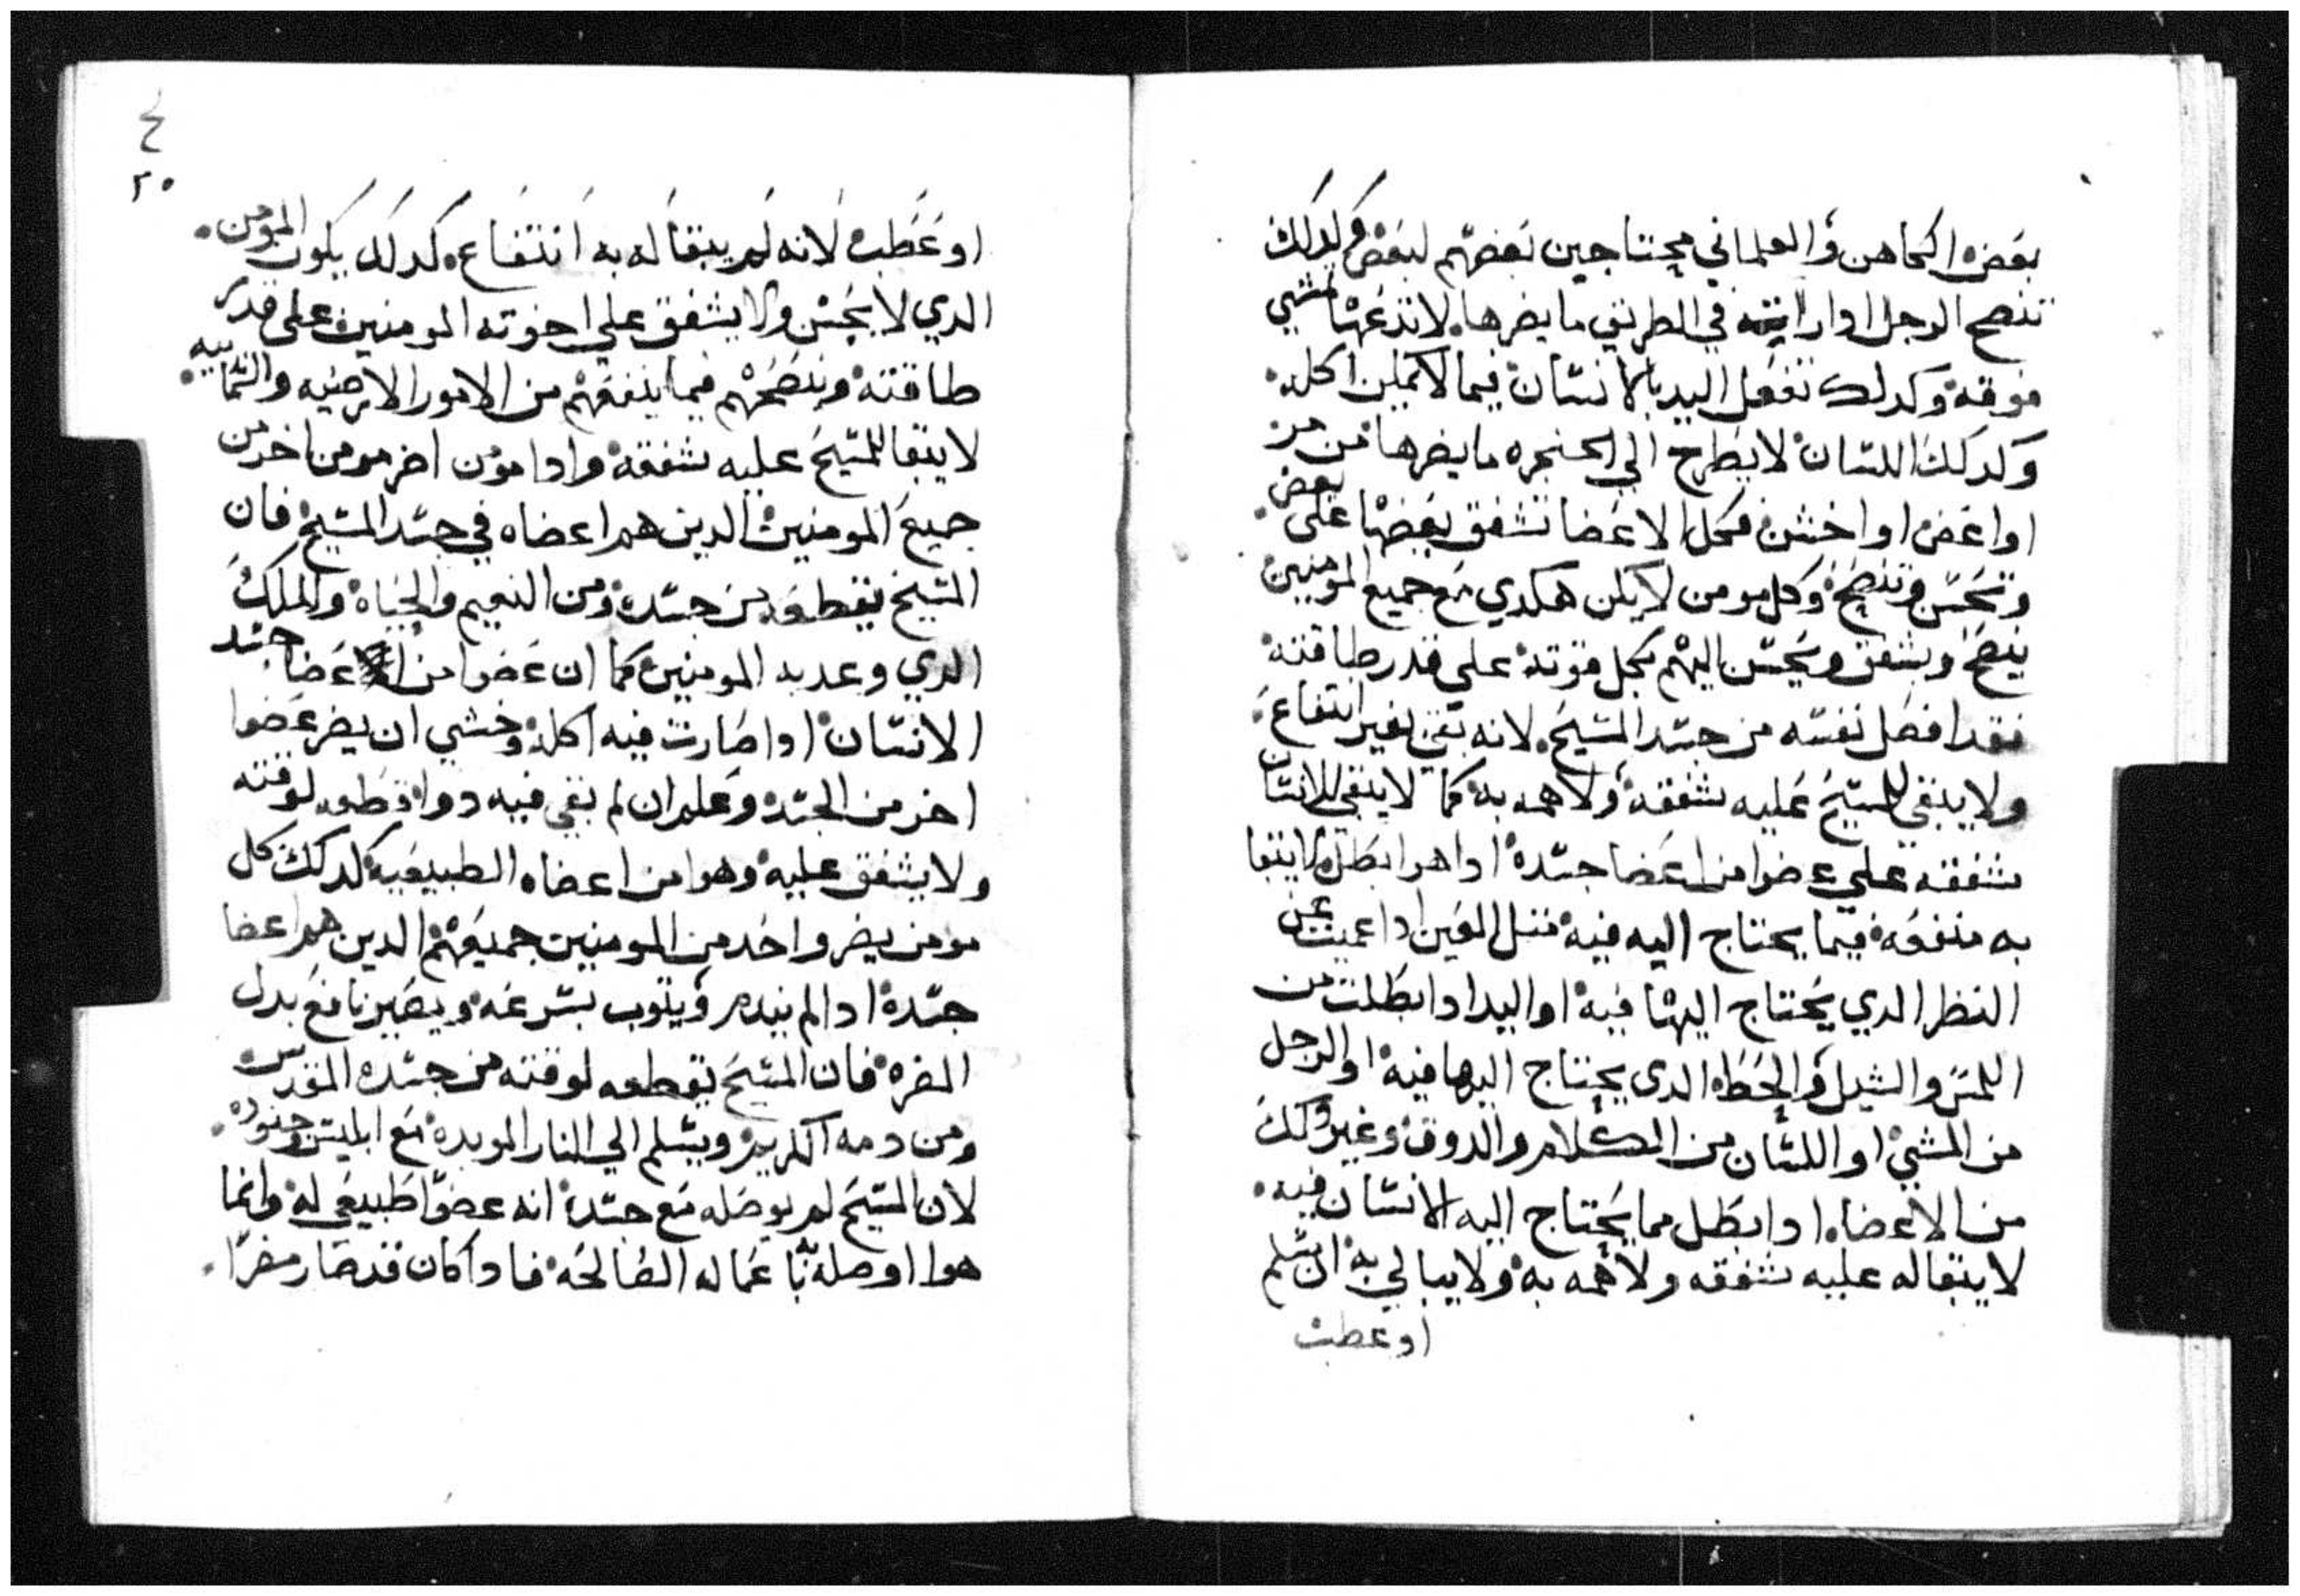 بعض الكاهن والعلماني محتاجين بعضهم لبعض وكدلك
تنصح الرجل ادا راته في الطريق ما يضرها لا تدعها تمشي
فوقه وكدلك تفعل اليد بالانسان فيما لا يمكن اكله
وكدلك اللسان لا يطرح الي الحنجره ما يضرها من مر
او اعفن او اخشن فكل الاعضا تشفق بعضها على بعض
وتحسن وتنصح وكل مومن لا يكن هكدي مع جميع المومنين
ينصح ويشفق ويحسن اليهم بكل قوته علي قدر طاقته
فقد افصل نفسه من جسد المسيح لانه بقي بغير انتفاع
ولا يبقي للمسيح عليه شفقه ولا همه به كما لا يبقي للانسان
شفقه علي عضوا من اعضا جسده ادا هو ابطل ولا يبقا
به منفعه فيما يحتاج اليه فيه مثل العين ادا عميت عن
النظر الدي يحتاج اليها فيه او اليد ادا بطلت من
اللمس والشيل والحط الدي يحتاج اليها فيه او الرجل
من المشي او اللسان من الكلام والدوق وغير دلك
من الاعضاء ادا بطل مما يحتاج اليه الانسان فيه
لا يبقا له عليه شفقه ولا همه به ولا يبالي به ان سلم
او عطب
٤
٢٠
او عطب لانه لم يبقا له به انتفاع كدلك يكون المومن
الدي لا يحسن ولا يشفق علي اخوته المومنين على قدر
طاقته وينصحهم فيما ينفعهم من الامور الارضيه والسماييه
لا يبقا للمسيح عليه شفقه وادا مومن اضر مومن اخر من
جميع المومنين الدين هم اعضاه في جسد المسيح فان
المسيح يقطعه من جسده ومن النعيم والحياه والملك
الدي وعد به المومنين كما ان عضوا من اعضا جسد
الانسان ادا صارت فيه اكله وخشي ان يضر عضوا
اخر من الجسد وعلم ان لم بقي فيه دوا قطعه لوقته
ولا يشفق عليه وهو من اعضاه الطبيعيه كدلك كل
مومن يضر واحد من المومنين جميعهم الدين هم اعضا
جسده ادا لم يندم ويتوب بسرعه ويصير نافع بدل
المضره فان المسيح يقطعه لوقته من جسده المقدس
ومن دمه الكريم ويسلم الي النار الموبده مع ابليس وجنوده
لان المسيح لم يوصله مع جسده انه عضوا طبيعي له وانما
هوا اوصله باعماله الصالحه فادا كان قد صار مضرا